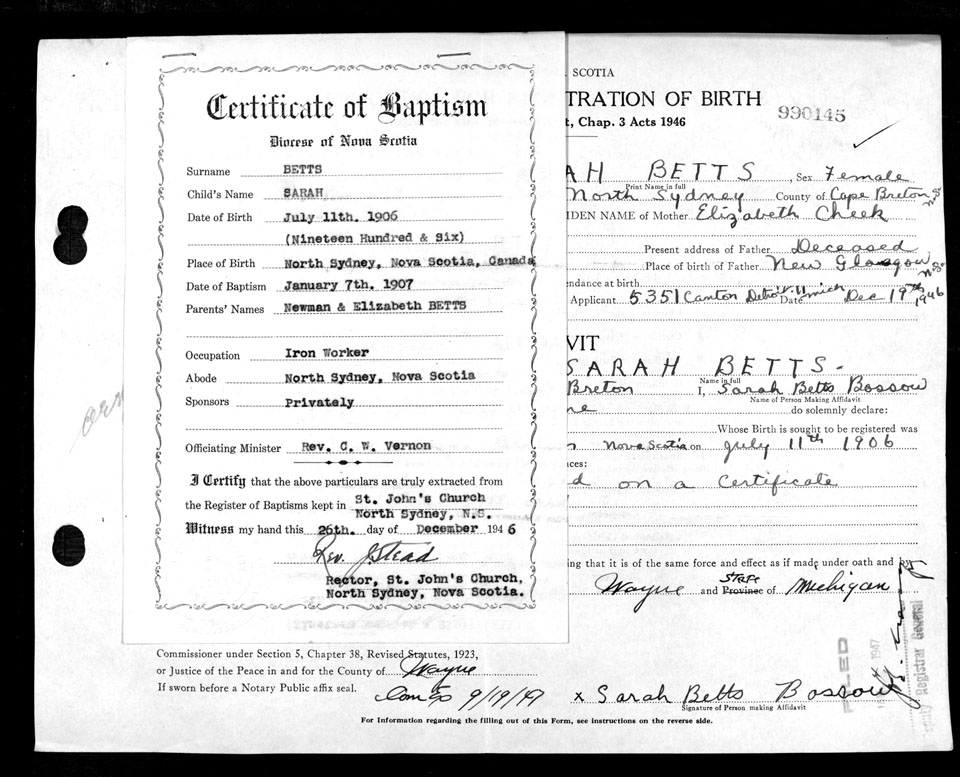 Certificate of Baptism
Diocese of Nova Scotia
Surname BETTS
Child's Name SARAH
Date of Birth July 11th. 1906
(Nineteen Hundred & Six)
Place of Birth North Sydney, Nova Scotia, Canada
Date of Baptism January 7th. 1907
Parents' Names Newman & Elizabeth BETTS
Occupation Iron Worker
Abode North Sydney, Nova Scotia
Sponsors Privately
Officiating Minister Rev. C. W. Vernon
I Certify that the above particulars are truly extracted from
the Register of Baptisms kept in St. John's Church
North Sydney, N.S.
Witness my hand this 26th. day of December 1946
Rev. J Stead
Rector, St. John's Church,
North Sydney, Nova Scotia.
SCOTIA
TRATION OF BIRTH
990145
t, Chap. 3 Acts 1946
AH BETTS, Sex Female
Print Name in full
North Sydney County of Cape Breton N.S.
IDEN NAME of Mother Elizabeth Cheek
Present address of Father Deceased
Place of birth of Father New Glasgow N.S.
endance at birth
Applicant 5351 Canton Detroit 11 Mich Date Dec 19th 1946
VIT
SARAH BETTS.
Name in full
Breton I, Sarah Betts Bossow
Name of Person Making Affidavit
ne do solemnly declare:
Whose Birth is sought to be registered was
Nova Scotia on July 11th 1906
nces:
d on a Certificate
ing that it is of the same force and effect as if made under oath and by
Wayne and State Province of Michigan
Commissioner under Section 5, Chapter 38, Revised Statutes, 1923,
or Justice of the Peace in and for the County of Wayne
If sworn before a Notary Public affix seal.
Com Ex 9/19/47
x Sarah Betts Bossow
Signature of Person making Affidavit
FILED
1947
Deputy Registrar General
For Information regarding the filling out of this Form, see instructions on the reverse side.